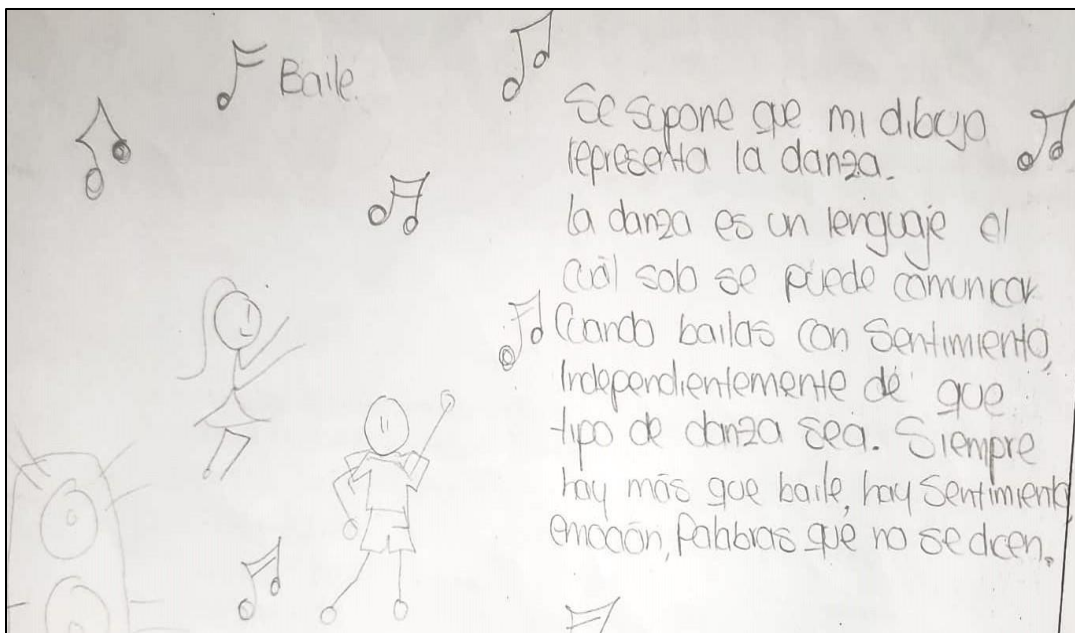 Baile.
Se supone que mi dibujo
representa la danza.
la danza es un lenguaje el
cuál solo se puede comunicar
Cuando bailas con Sentimiento,
Independientemente de que
tipo de danza sea. Siempre
hay más que baile, hay Sentimiento,
emoción, Palabras que no se dicen.